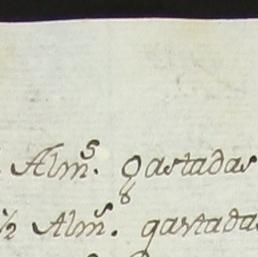 Alm.ˢ gastadas
½ Alm.ˢ gastadas